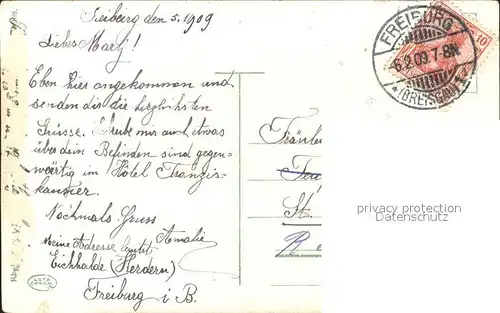 Freiburg den 5. 1909
Liebes Mary!
Eben hier angekommen und
senden dir die herzlichsten
Grüsse. mir auch etwas
über dein Befinden sind gegen=
wärtig im Hôtel Franzis-
kaner.
Nochmals Gruss
Amalie
Meine Adresse lautet
Eichhalde (Herdern)
Freiburg i B.
FREIBURG
6.2.09.7-8N.
*(BREISGAU)
10
Fräulein
St.
privacy protection
Datenschutz